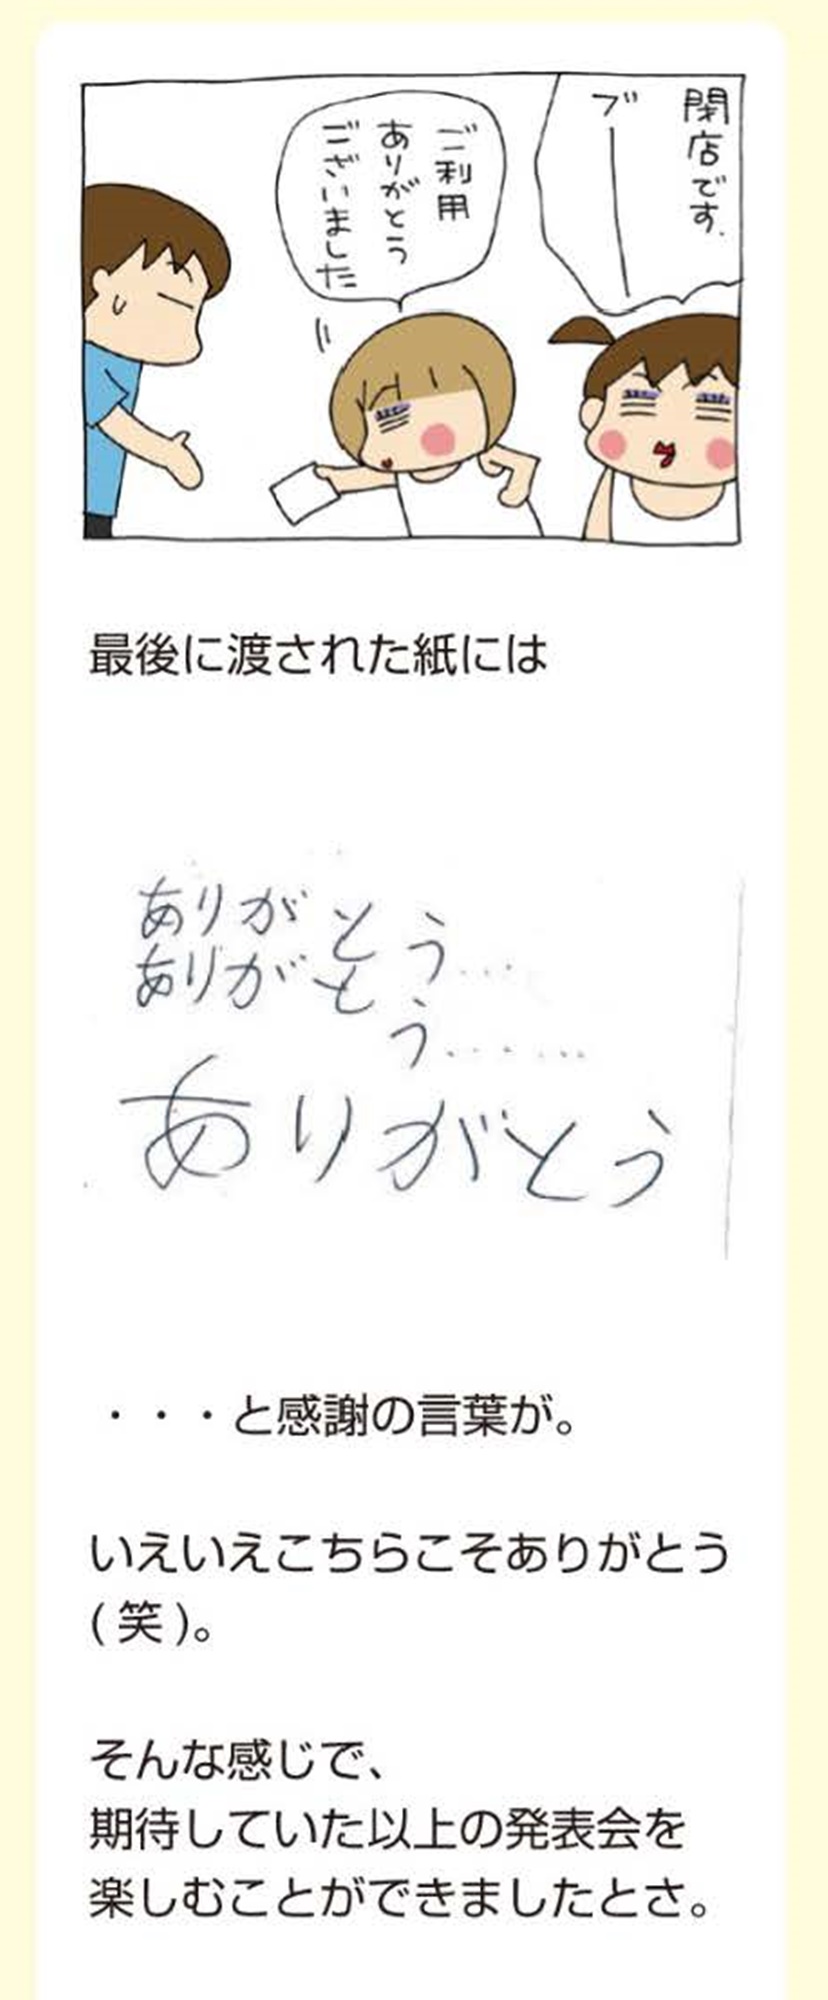 閉店です.
ブー
ご利用
ありがとう
ございました
最後に渡された紙には
ありがとう...
ありがと
う......
ありがとう
・・・と感謝の言葉が。
いえいえこちらこそありがとう
(笑)。
そんな感じで、
期待していた以上の発表会を
楽しむことができましたとさ。